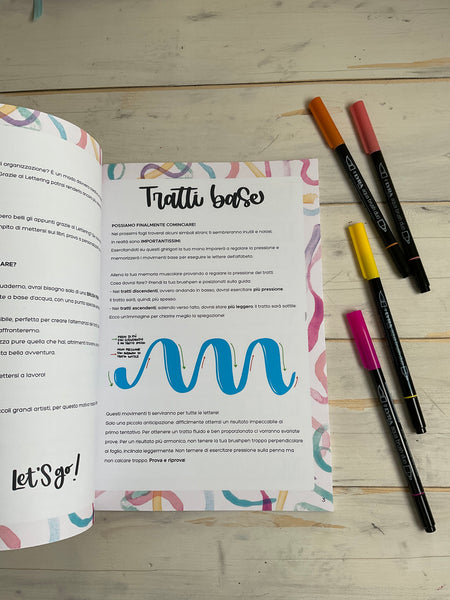 l organizzazione? È un modo davvero
Grazie al Lettering potrai renderlo ancora
pero belli gli appunti grazie al Lettering?
mpito di mettersi sui libri prova a
ARE?
uaderno, avrai bisogno solo di una
te a base d'acqua, con una punta
sibile, perfetto per creare l'alternanza
affronteremo.
zza pure quella che hai, altrimenti
ta bella avventura.
ettersi a lavoro!
ccoli grandi artisti, per questo motivo
Let's go!
Tratti base
POSSIAMO FINALMENTE COMINCIARE!
Nei prossimi fogli troverai alcuni simboli strani, ti sembreranno inutili e noiosi,
in realtà sono IMPORTANTISSIMI.
Esercitandoti su questi ghirigori la tua mano imparerà a regolare la pressione e
memorizzarà i movimenti base per eseguire le lettere dell'alfabeto.
Allena la tua memoria muscolare provando a regolare la pressione dei tratti.
Cosa dovrai fare? Prendi la tua brushpen e posizionati sulla guida
- Nei tratti discendenti, ovvero andando in basso, dovrai esercitare più pressione.
Il tratto sarà, quindi, più spesso.
- nei tratti ascendenti, salendo verso l'alto, dovrai stare più leggero. Il tratto sarà sottile.
Ecco un'immagine per chiarire meglio la spiegazione:
PREMI DI PIÙ
Questi movimenti ti serviranno per tutte le lettere!
Solo una piccola anticipazione: difficilmente otterrai un risultato impeccabile al
primo tentativo. Per ottenere un tratto fluido e ben proporzionato ci vorranno svariate
prove. Per un risultato più armonico, non tenere la tua brushpen troppo perpendicolare
al foglio, inclinala leggermente. Non temere di esercitare pressione sulla penna ma
non calcare troppo. Prova e riprova!
5